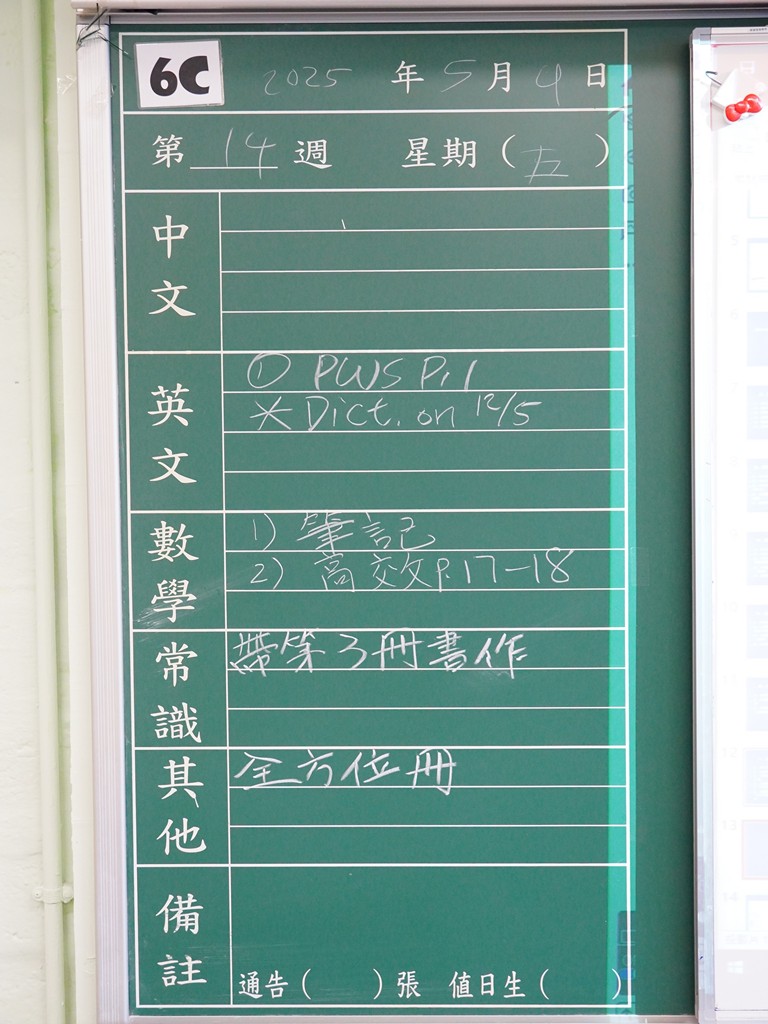 6C 2025 年 5 月 9 日
第 14 週 星期（五）
中文
英文
① PWS P.1
* Dict. on 12/5
數學
1) 筆記
2) 高效P.17-18
常識
帶第3冊書作
其他
全方位冊
備註
通告（ ）張 值日生（ ）